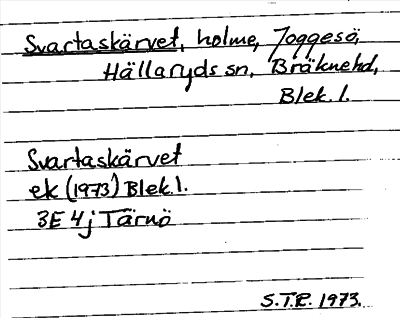 Svartaskärvet, holme, Joggesö,
Hällaryds sn, Bräknehd,
Blek. l.
Svartaskärvet
ek (1973) Blek. l.
3E 4j Tärnö
S.T.R. 1973.